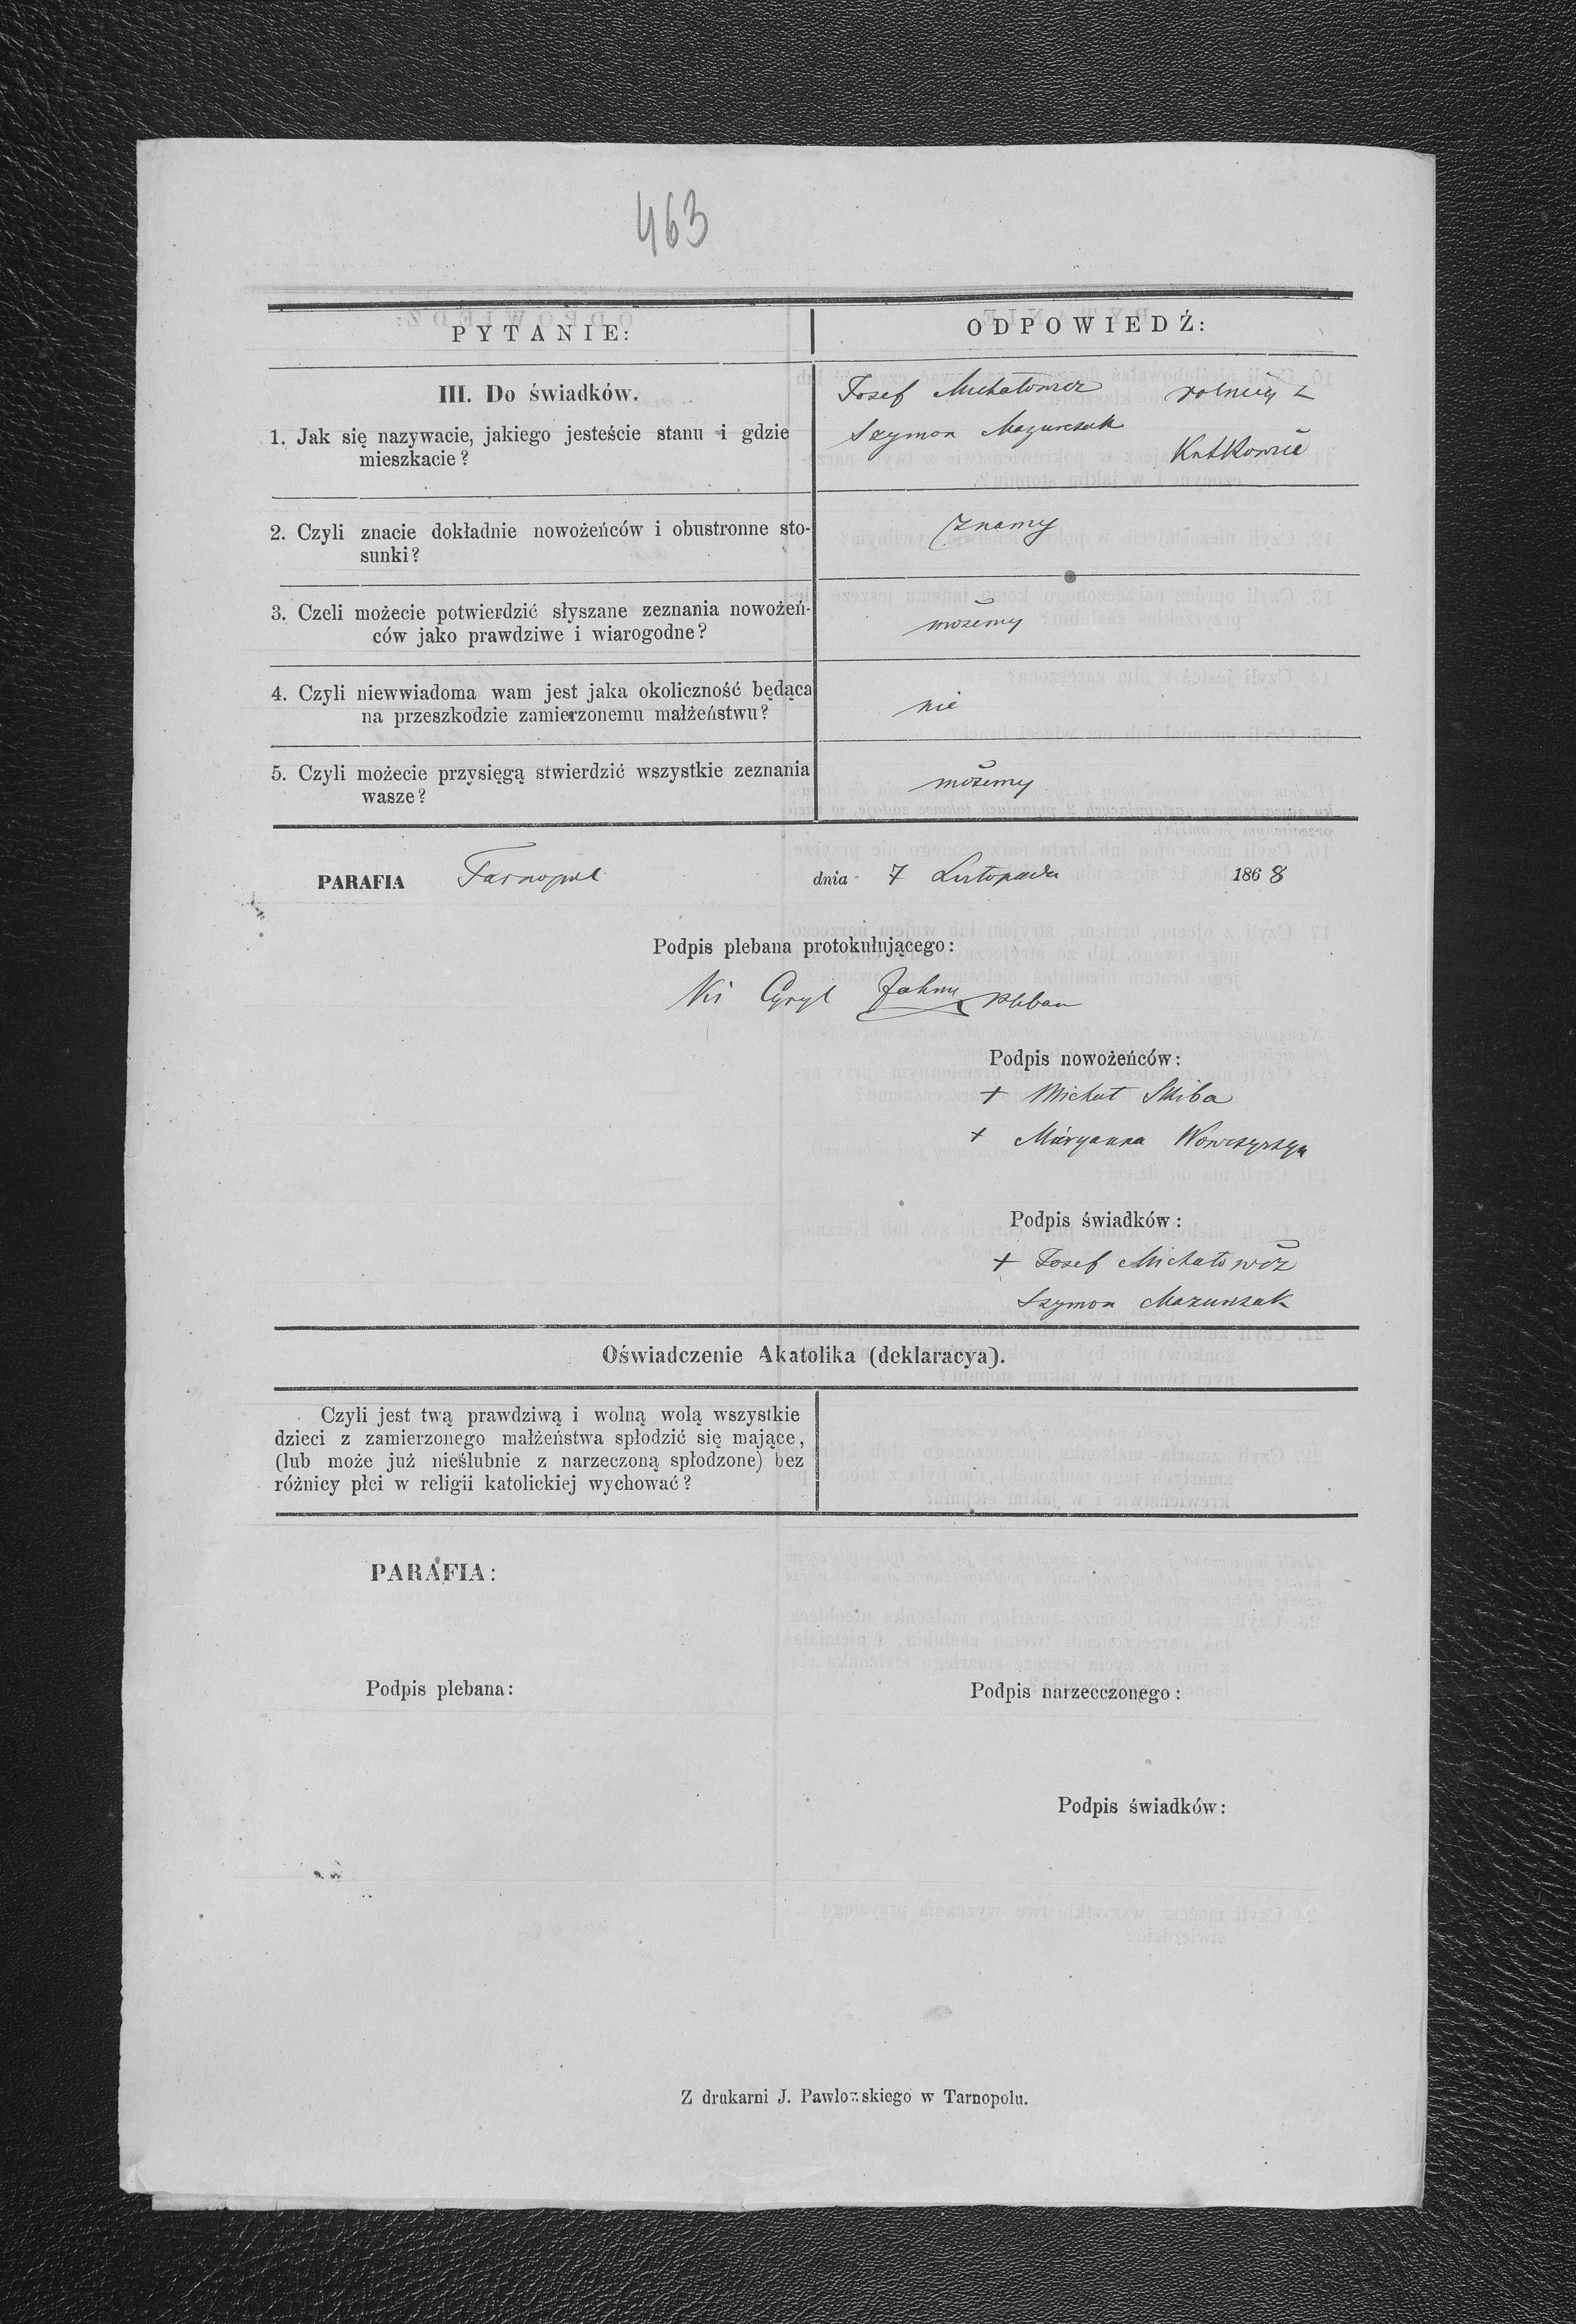 463
PYTANIE:
ODPOWIEDŹ:
III. Do świadków.
1. Jak się nazywacie, jakiego jesteście stanu i gdzie
mieszkacie?
Josef Michałowicz rolnicy z
Szymon Mazurczak
Kutkowic
2. Czyli znacie dokładnie nowożeńców i obustronne sto-
sunki?
znamy
3. Czeli możecie potwierdzić słyszane zeznania nowożeń-
ców jako prawdziwe i wiarogodne?
możemy
4. Czyli niewwiadoma wam jest jaka okoliczność będąca
na przeszkodzie zamierzonemu małżeństwu?
nie
5. Czyli możecie przysięgą stwierdzić wszystkie zeznania
wasze?
możemy
PARAFIA Tarnopol dnia 7 Listopada 1868
Podpis plebana protokułującego:
Cyryl Pleban
Podpis nowożeńców:
+ Michał Skiba
+ Maryanna
Podpis świadków:
+ Josef
Szymon Mazurczak
Oświadczenie Akatolika (deklaracya).
Czyli jest twą prawdziwą i wolną wolą wszystkie
dzieci z zamierzonego małżeństwa spłodzić się mające,
(lub może już nieślubnie z narzeczoną spłodzone) bez
różnicy płci w religii katolickiej wychować?
PARAFIA:
Podpis plebana:
Podpis narzecczonego:
Podpis świadków:
Z drukarni J. Pawlowskiego w Tarnopolu.